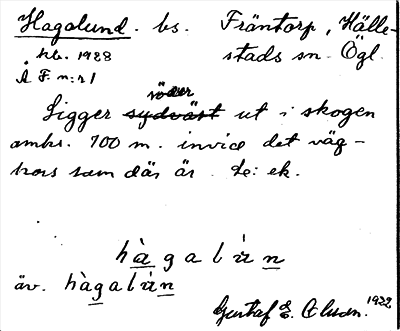 Hagalund. bs. Fräntorp, Hälle-
hb. 1928 stads sn. Ögl.
Å F. n:r 1
söder
Ligger sydväst ut i skogen
ombr. 700 m. invid det väg-
kors som där är. Le: ek.
hàgalùn
äv. hàgalùn
Gustaf E. Olsson. 1932